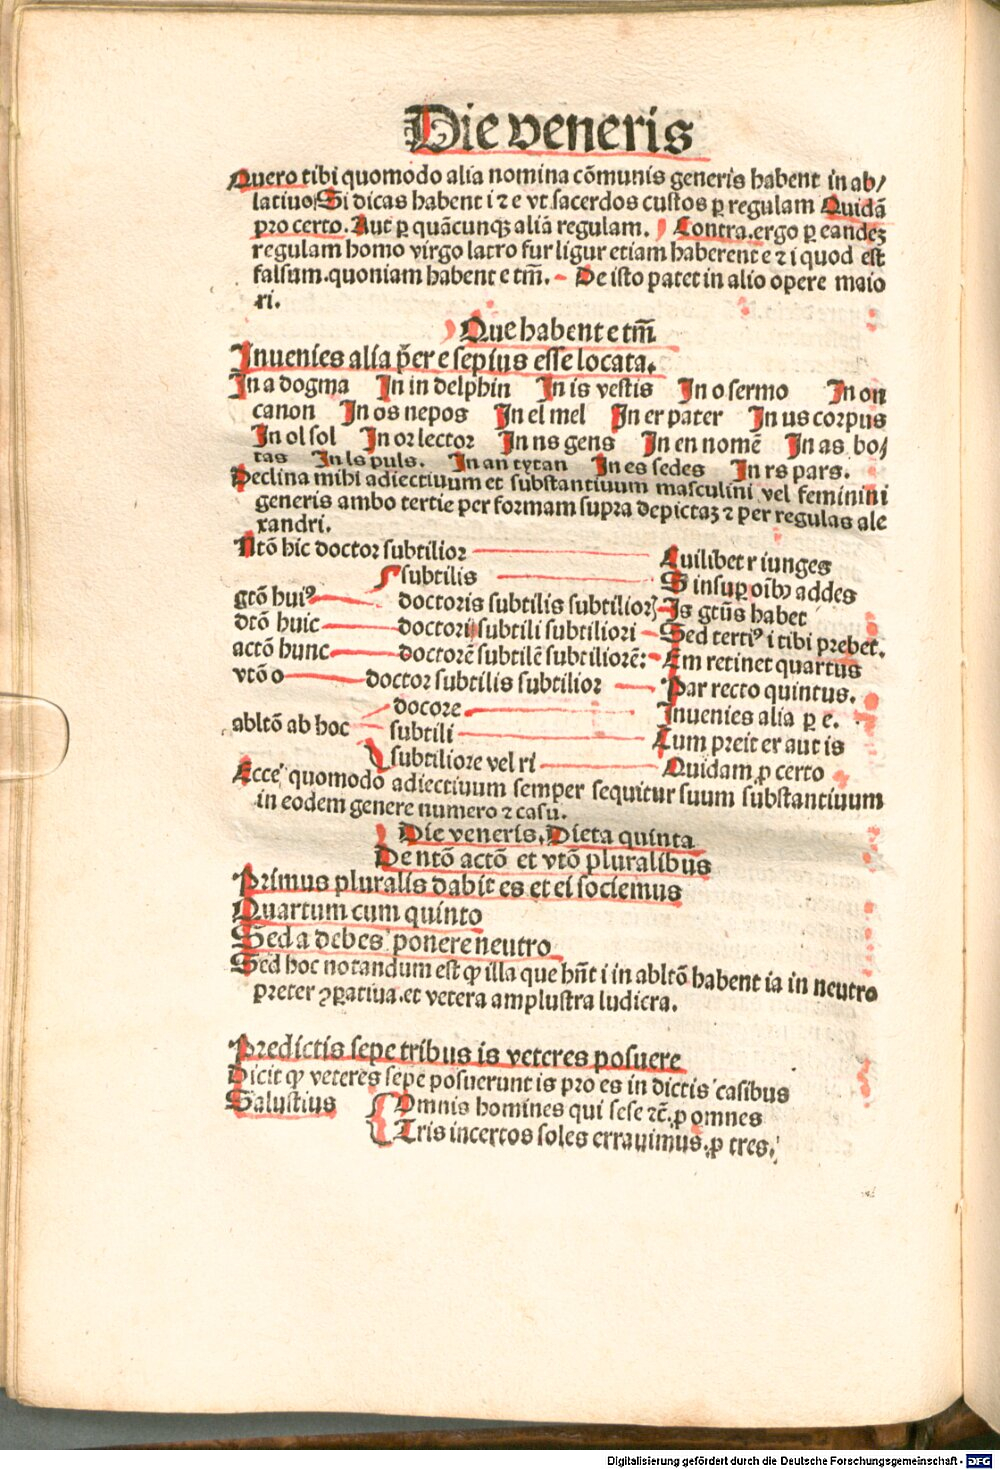 Die veneris
Quero tibi quomodo alia nomina cōmunis generis habent in ab/
latiuo. Si dicas habent i ⁊ e vt sacerdos custos ꝑ regulam Quidā
pro certo. Aut ꝑ quācunqꝫ aliā regulam. Contra. ergo ꝑ eandeꝫ
regulam homo virgo latro fur ligur etiam haberent e ⁊ i quod est
falsum. quoniam habent e tm̄. De isto patet in alio opere maio
ri.
Que habent e tm̄
Inuenies alia p̄er e sepius esse locata.
In a dogma In in delphin In is vestis In o sermo In on
canon In os nepos In el mel In er pater In us corpus
In ol sol In or lector In ns gens In en nomē In as bo/
tas In ls puls. In an tytan In es sedes In rs pars.
Declina mihi adiectiuum et substantiuum masculini vel feminini
generis ambo tertie per formam supra depictaꝫ ⁊ per regulas ale
xandri.
Ntō hic doctor subtilior Cuilibet r iunges
subtilis S insuꝑ oībꝰ addes
gtō huiꝰ doctoris subtilis subtilioꝝ Is gtūs habet
dtō huic doctori subtili subtiliori Sed tertiꝰ i tibi prebet.
actō hunc doctorē subtilē subtiliorē: Em retinet quartus
vtō o doctor subtilis subtilior Par recto quintus.
docore Inuenies alia ꝑ e.
abltō ab hoc subtili Cum preit er aut is
subtiliore vel ri Quidam ꝓ certo
Ecce quomodo adiectiuum semper sequitur suum substantiuum
in eodem genere numero ⁊ casu.
Die veneris. Dieta quinta
De ntō actō et vtō pluralibus
Primus pluralis dabit es et ei sociemus
Quartum cum quinto
Sed a debes ponere neutro
Sed hoc notandum est ꝙ illa que hn̄t i in abltō habent ia in neutro
preter ꝯꝑatiua. et vetera amplustra ludicra.
Predictis sepe tribus is veteres posuere
Dicit ꝙ veteres sepe posuerunt is pro es in dictis casibus
Salustius Omnis homines qui sese ⁊c̄. ꝓ omnes
Tris incertos soles errauimus. ꝓ tres.
Digitalisierung gefördert durch die Deutsche Forschungsgemeinschaft - DFG